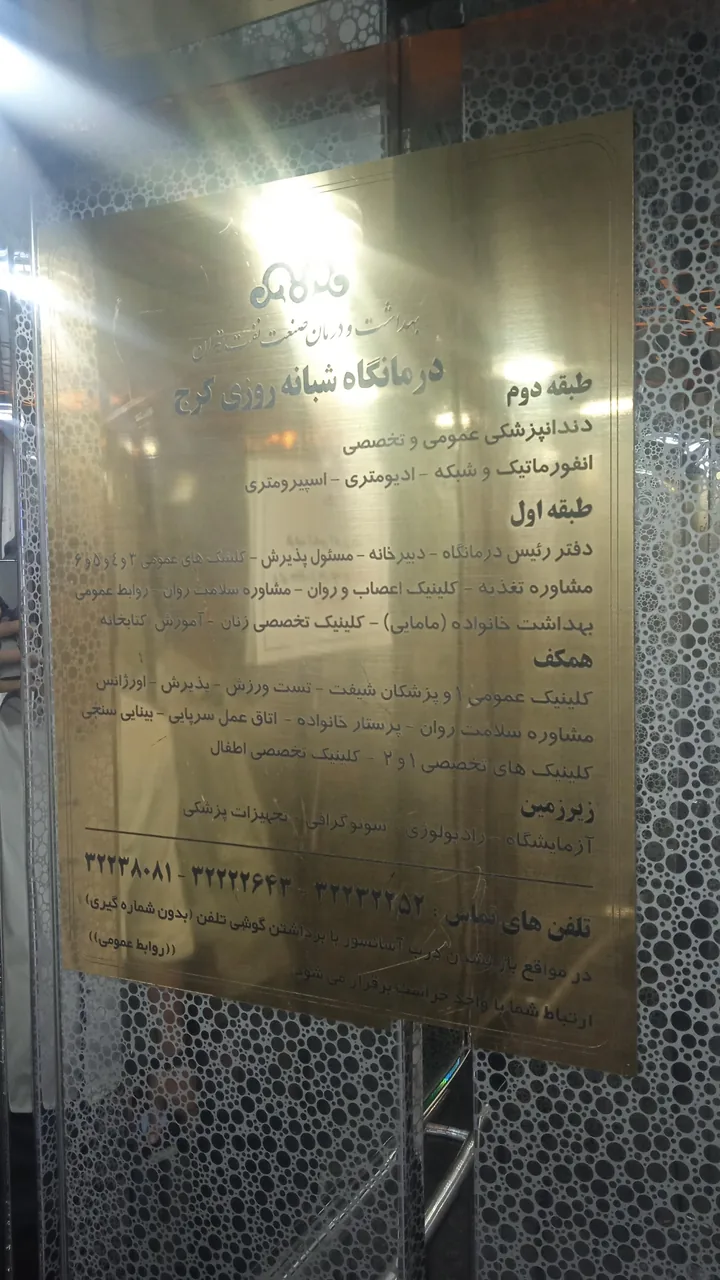 بهداشت و درمان صنعت نفت تهران
درمانگاه شبانه روزی کرج
طبقه دوم
دندانپزشکی عمومی و تخصصی
انفورماتیک و شبکه - ادیومتری - اسپیرومتری
طبقه اول
دفتر رئیس درمانگاه - دبیرخانه - مسئول پذیرش - کلینیک های عمومی ۳ و ٤ و ۵ و ۶
مشاوره تغذیه - کلینیک اعصاب و روان - مشاوره سلامت روان - روابط عمومی
بهداشت خانواده (مامایی) - کلینیک تخصصی زنان - آموزش کتابخانه
همکف
کلینیک عمومی ۱ و پزشکان شیفت - تست ورزش - پذیرش - اورژانس
مشاوره سلامت روان - پرستار خانواده - اتاق عمل سرپایی - بینایی سنجی
کلینیک های تخصصی ۱ و ۲ - کلینیک تخصصی اطفال
زیرزمین
آزمایشگاه - رادیولوژی - سونوگرافی - تجهیزات پزشکی
تلفن های تماس : ۳۲۲۳۲۲۵۲ - ۳۲۲۲۲۶۴۳ - ۳۲۲۳۸۰۸۱
در مواقع باز نشدن درب آسانسور با برداشتن گوشی تلفن (بدون شماره گیری)
ارتباط شما با واحد حراست برقرار می شود.
((روابط عمومی))